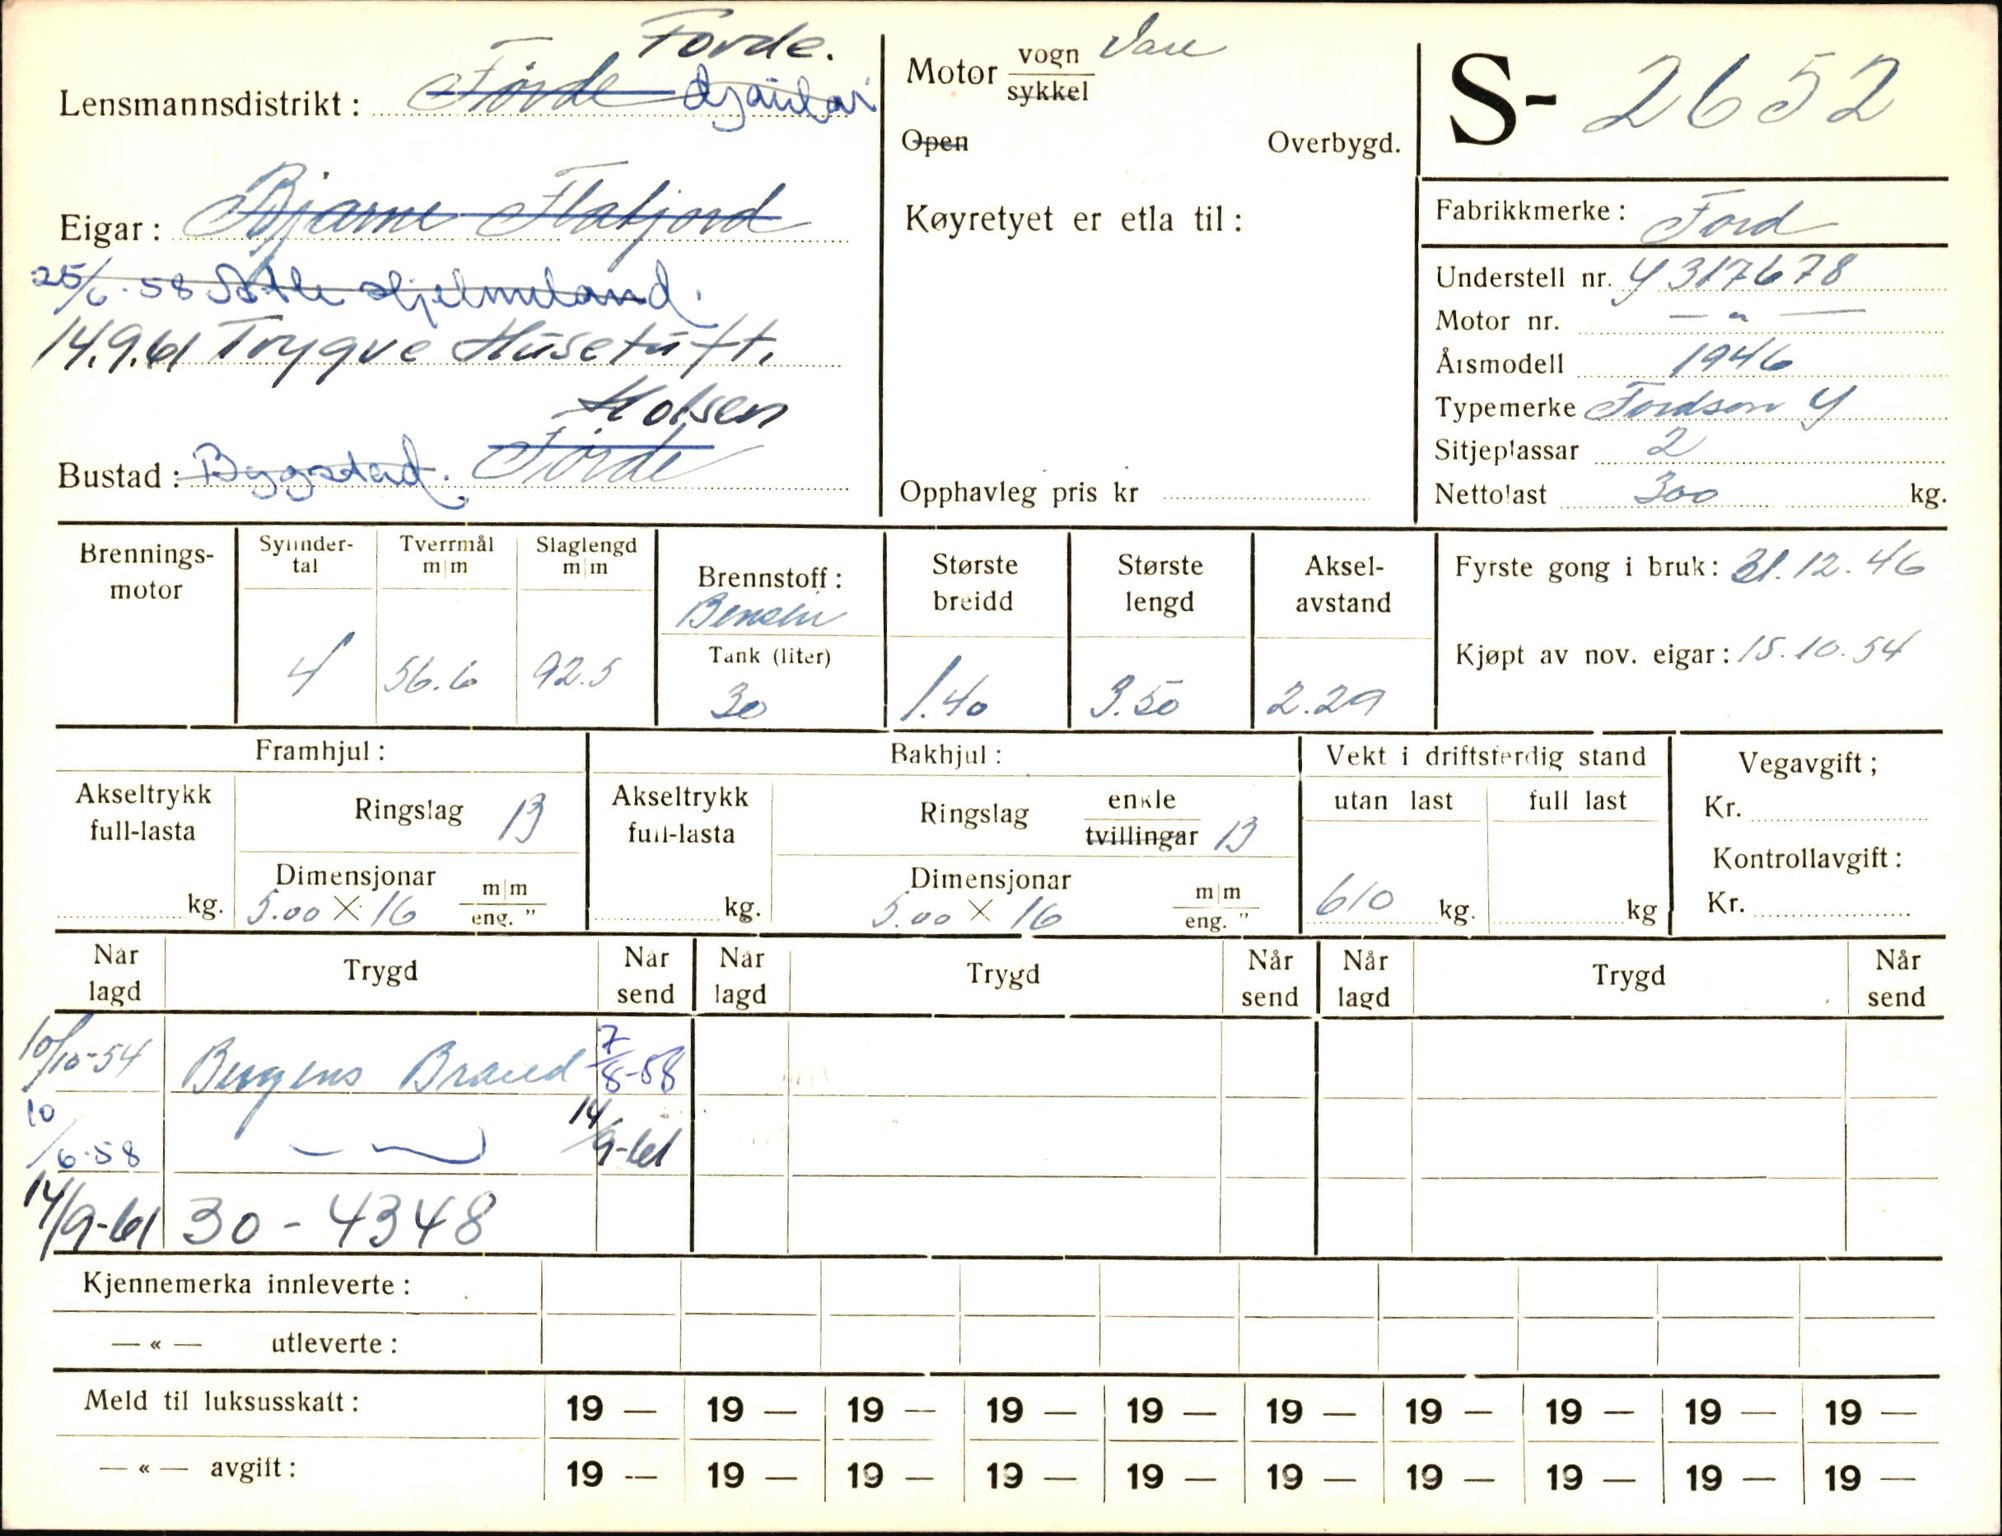 Førde.
Lensmannsdistrikt: Førde Gjaular
Eigar: Bjarne Flatjord
25/6-58 Atle Hjelmeland.
14.9.61 Trygve Husetuft.
Holsen
Bustad: Bygstad. Førde
Motor vogn Vare
sykkel
Open Overbygd.
Køyretyet er etla til:
Opphavleg pris kr
S- 2652
Fabrikkmerke: Ford
Understell nr. Y317678
Motor nr. — " —
Årsmodell 1946
Typemerke Fordson Y
Sitjeplassar 2
Nettolast 300 kg.
Brennings-
motor
Sylinder-
tal
4
Tverrmål
m/m
56.6
Slaglengd
m/m
92.5
Brennstoff:
Bensin
Tank (liter)
30
Største
breidd
1.40
Største
lengd
3.50
Aksel-
avstand
2.29
Fyrste gong i bruk: 31.12.46
Kjøpt av nov. eigar: 15.10.54
Framhjul:
Akseltrykk
full-lasta
kg.
Ringslag B
Dimensjonar
5.00 X 16 m/m
eng. "
Bakhjul:
Akseltrykk
full-lasta
kg.
Ringslag enkle
tvillingar B
Dimensjonar
5.00 X 16 m/m
eng. "
Vekt i driftsferdig stand
utan last full last
610 kg. kg
Vegavgift;
Kr.
Kontrollavgift:
Kr.
Når
lagd Trygd Når
send Når
lagd Trygd Når
send Når
lagd Trygd Når
send
10/10-54 Bergens Brand 7/8-58
10/6-58 — 14/9-61
14/9-61 30-4348
Kjennemerka innleverte:
— « — utleverte:
Meld til luksusskatt: 19 — 19 — 19 — 19 — 19 — 19 — 19 — 19 — 19 — 19 —
— « — avgift: 19 — 19 — 19 — 19 — 19 — 19 — 19 — 19 — 19 — 19 —